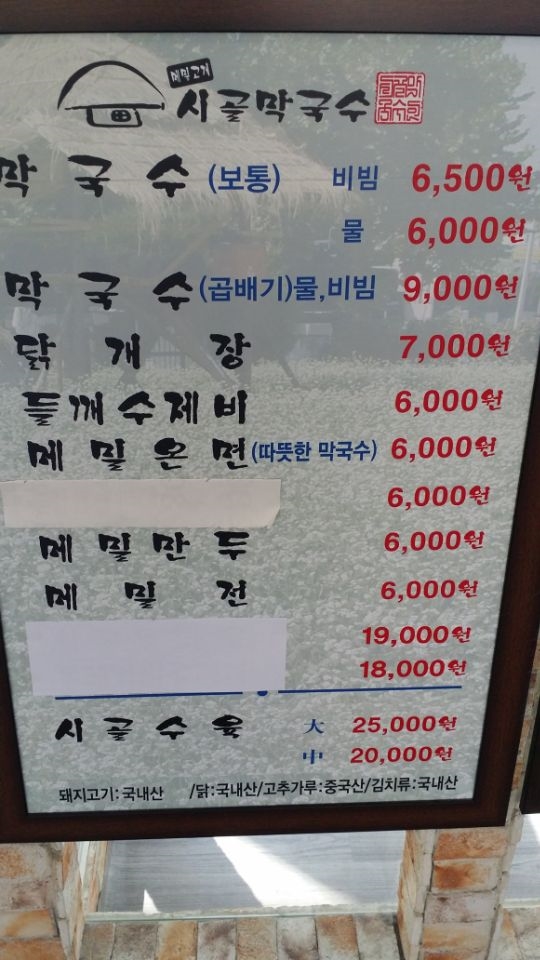 메밀고개
시골막국수
막국수 (보통) 비빔 6,500원
물 6,000원
막국수 (곱배기)물,비빔 9,000원
닭개장 7,000원
들깨수제비 6,000원
메밀온면 (따뜻한 막국수) 6,000원
6,000원
메밀만두 6,000원
메밀전 6,000원
19,000원
18,000원
시골수육 大 25,000원
中 20,000원
돼지고기:국내산 /닭:국내산/고추가루:중국산/김치류:국내산